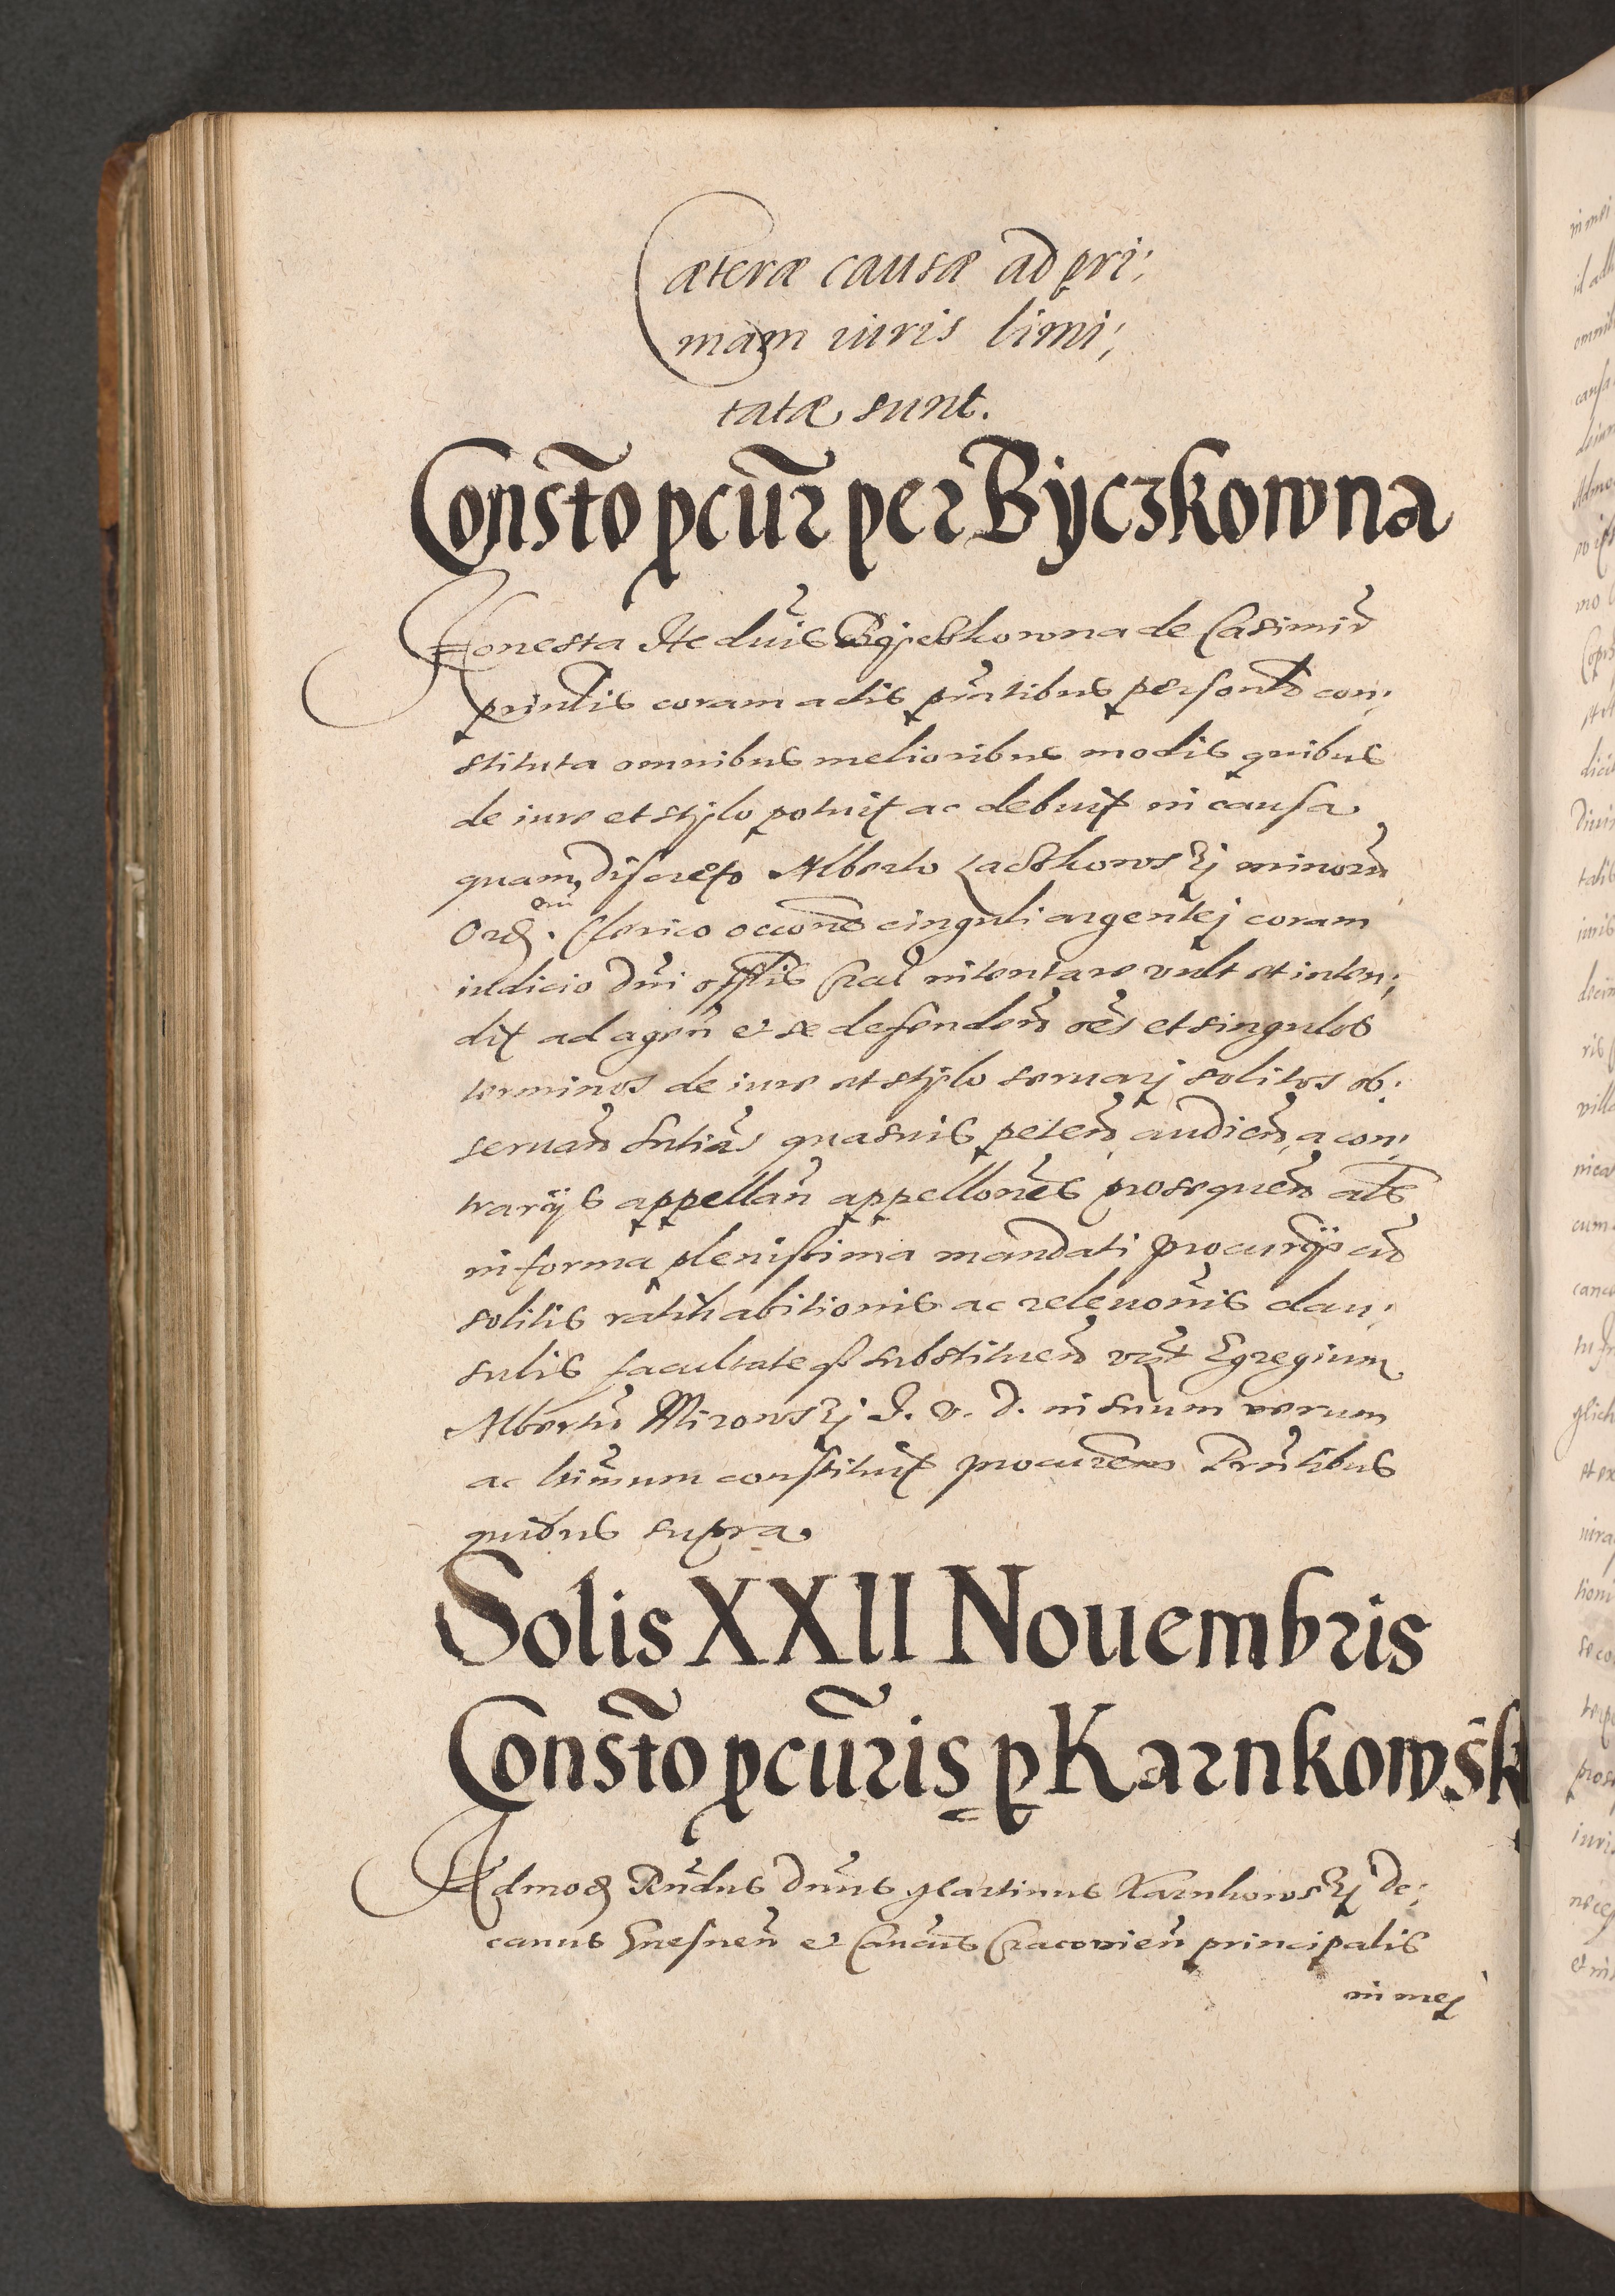 Cæteræ causæ ad pri;
mam iuris limi;
tatæ sunt.
Consto͂ pcur͂ per Byczkowna
Honesta Heduis͂ Byczkowna de Casimir͂
printlis coram actis pn͂tibus personlr con;
stituta omnibus melioribus modis quibus
de iure et stylo potuit ac debuit in causa
quam, discreto Alberto Laczkowskj minor͂
Ord. Clerico occone͂ cinguli argentej coram
iudicio Dn͂i offlis Cracͦ intentare vult et inten;
dit ad agen͂ et se defenden͂ oe͂s et singulos
terminos de iure et stylo seruarj solitos ob;
seruan͂ sntia͂s quasuis peten͂ audien͂ a con;
trarijs appellan͂ appellone͂s prosequen͂ als͂
in forma plenissima mandati procurij cu͂
solitis ratihabitionis ac releuon͂is clau;
sulis facultateqꝫ substituen͂
Egregium
Albertu͂ Mirowskj J. V. D. in suum verum
ac ltim͂um constituit procurem Prn͂tibus
quibus supra
Solis XXII Nouembris
Consto͂ pcur͂is p Karnkowsk
Admod Rn͂dus Dn͂us Martinus Karnkowskj De;
canus Gnesnen͂ et Can͂cus Cracouien͂ principalis
in mej